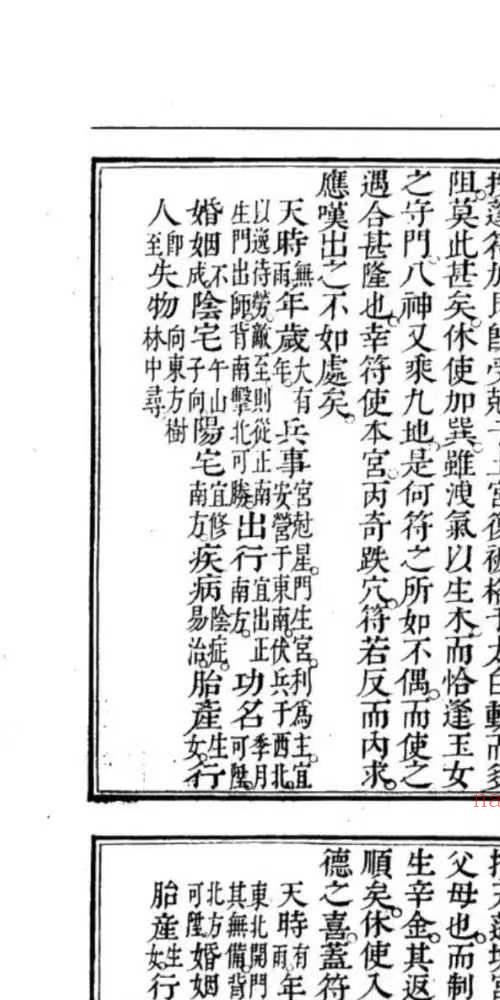 阻莫此甚矣。休使加巽。雖洩氣以生木。而恰逢玉女
之守門。八神又乘九地。是何符之所如不偶。而使之
遇合甚隆也。幸符使本宮。丙奇跌穴。符若反而內求。
應嘆出之不如處矣。
天時無雨。年歲大有年。兵事宮尅星。門生宮。利為主。宜安營于東南。伏兵于西北。
以逸待勞。敵至則從正南生門出師。背南擊北可勝。出行宜出正南方。功名季月可陞。
婚姻不成。陰宅午山子向陽宅宜修南方。疾病陰症。易治。胎產生女。行
人即至失物向東方樹林中尋。
父母也。而制
生辛金。其返
順矣。休使入
德之喜。蓋符
天時有雨。年
東北開門其無備。背
北方可陞。婚姻
胎產生女。行